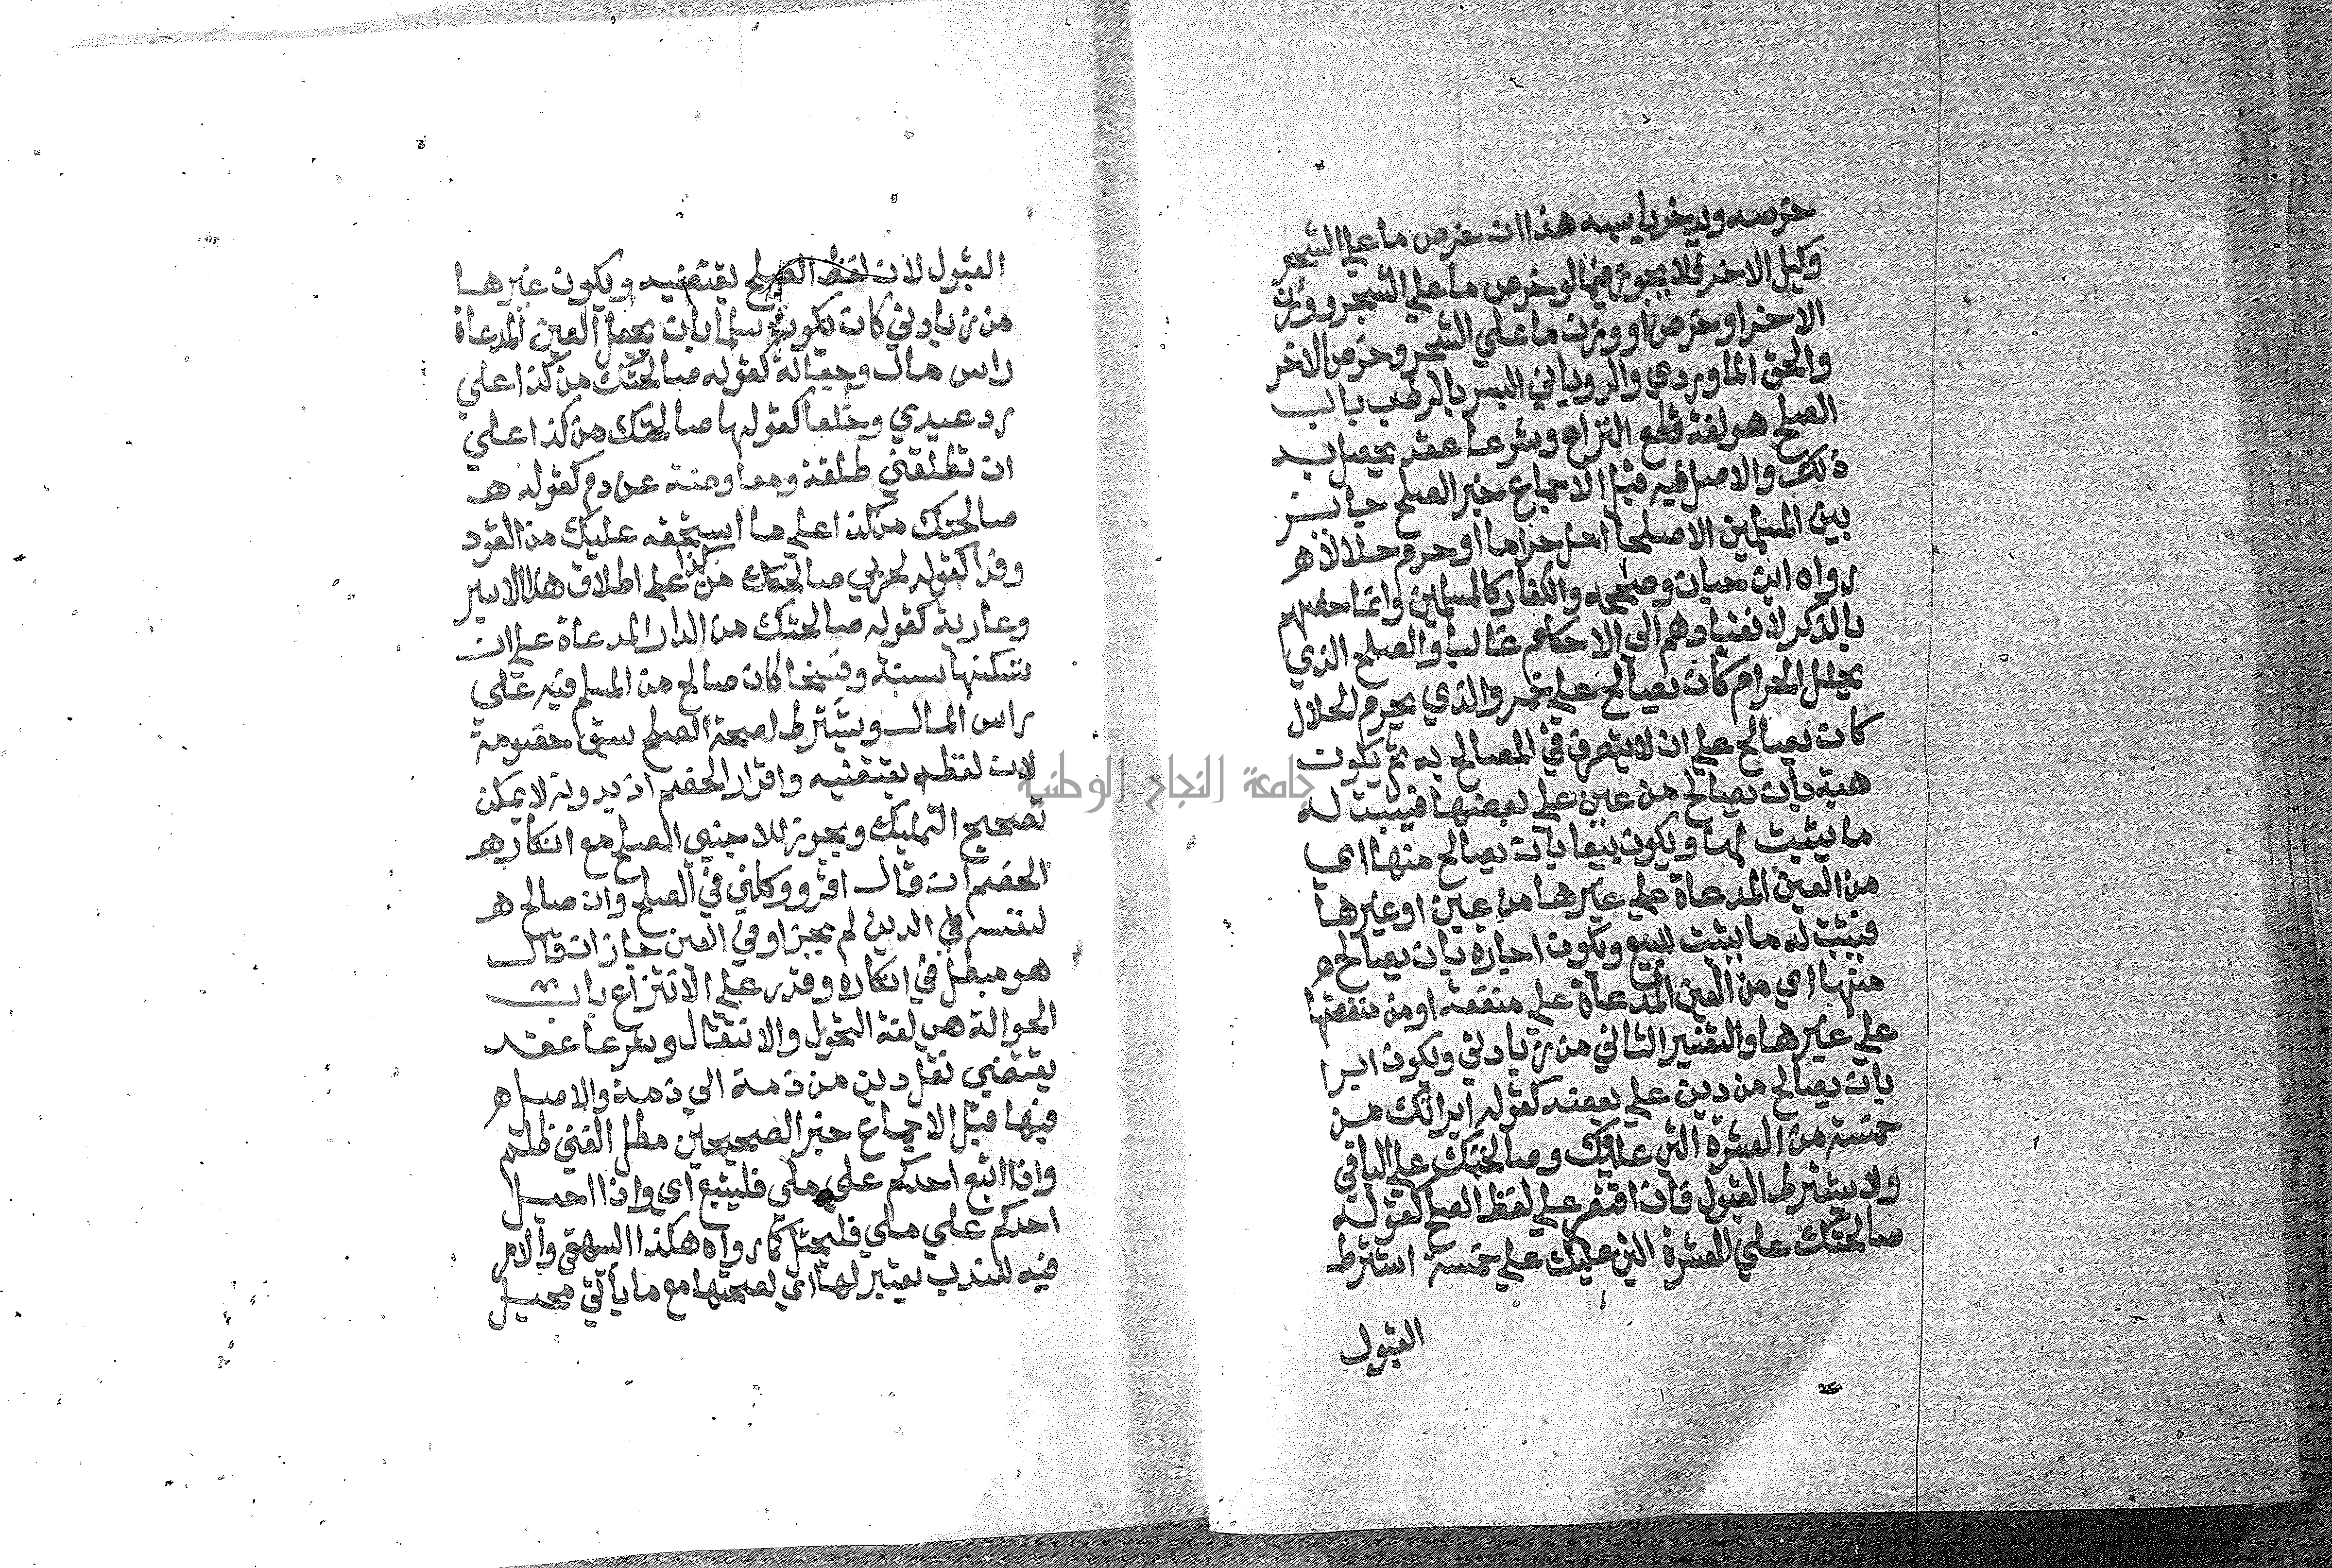 خرصه ويدخر يابسه هذا ان خرص ما علي الشجر
وكيل الاخر فلا يجوز فيما لو خرص ما علي الشجر ووزن
الاخر او خرص او وزن ما علي الشجر وخرص الاخر
والحق الماوردي والروياني البسر بالرطب باب
الصلح هو لغة قطع النزاع وشرعا عقد يحصل به
ذلك والاصل فيه قبل الاجماع خبر الصلح جايز
بين المسلمين الا صلحا احل حراما او حرم حلالا
رواه ابن حبان وصححه والكفار كالمسلمين وانما خصهم
بالذكر لانقيادهم الي الاحكام غالبا والصلح الذي
يحلل الحرام كان يصالح علي خمر والذي يحرم الحلال
كان يصالح علي ان لا يتصرف في المصالح به ثم يكون
هبة بان يصالح من عين علي بعضها فيثبت له
ما يثبت لها ويكون بيعا بان يصالح منها اي
من العين المدعاة علي غيرها من عين او غيرها
فيثبت له ما يثبت للبيع ويكون اجارة بان يصالح
منها اي من العين المدعاة علي منفعة او من منفعتها
علي غيرها والتقييد الثاني من زيادتي ويكون ابرا
بان يصالح من دين علي بعضه كقوله ابراتك من
خمسة من العشرة التي عليك وصالحتك علي الباقي
ولا يشترط القبول فان اقتصر علي لفظ الصلح كقوله
صالحتك علي العشرة التي عليك علي خمسة اشترط
القبول
القبول لان لفظ الصلح يقتضيه ويكون غيرها
من زيادتي كان يكون سلما بان يجعل العين المدعاة
راس مال وجعالة كقوله صالحتك من كذا علي
رد عبدي وخلعا كقولها صالحتك من كذا علي
ان تطلقني طلقة ومعاوضة عن دم كقوله
صالحتك من كذا علي ما استحقه عليك من القود
وفدا كقوله لحربي صالحتك من كذا علي اطلاق هذا الاسير
وعارية كقوله صالحتك من الدار المدعاة علي ان
تسكنها سنة وفسخا كان صالح من المسلم فيه علي
راس المال ويشترط لصحة الصلح سبق خصومة
لان لفظه يقتضيه واقرار الخصم اذ بدونه لا يمكن
تصحيح التمليك ويجوز للاجنبي الصلح مع انكار
الخصم ان قال اقر ووكلني في الصلح وان صالح
لنفسه في الدين لم يجز او في العين جاز ان قال
هو مبطل في انكاره وقدر علي الانتزاع باب
الحوالة هي لغة التحول والانتقال وشرعا عقد
يقتضي نقل دين من ذمة الي ذمة والاصل
فيها قبل الاجماع خبر الصحيحين مطل الغني ظلم
واذا اتبع احدكم علي ملي فليتبع اي واذا احيل
احدكم علي ملي فليحتل كما رواه هكذا البيهقي والامر
فيه للندب يعتبر لها اي لصحتها مع ما ياتي محيل
جامعة النجاح الوطنية